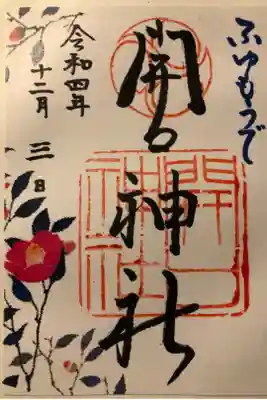 ふゆもうで
開口神社
開口神社
令和四年
十二月三日